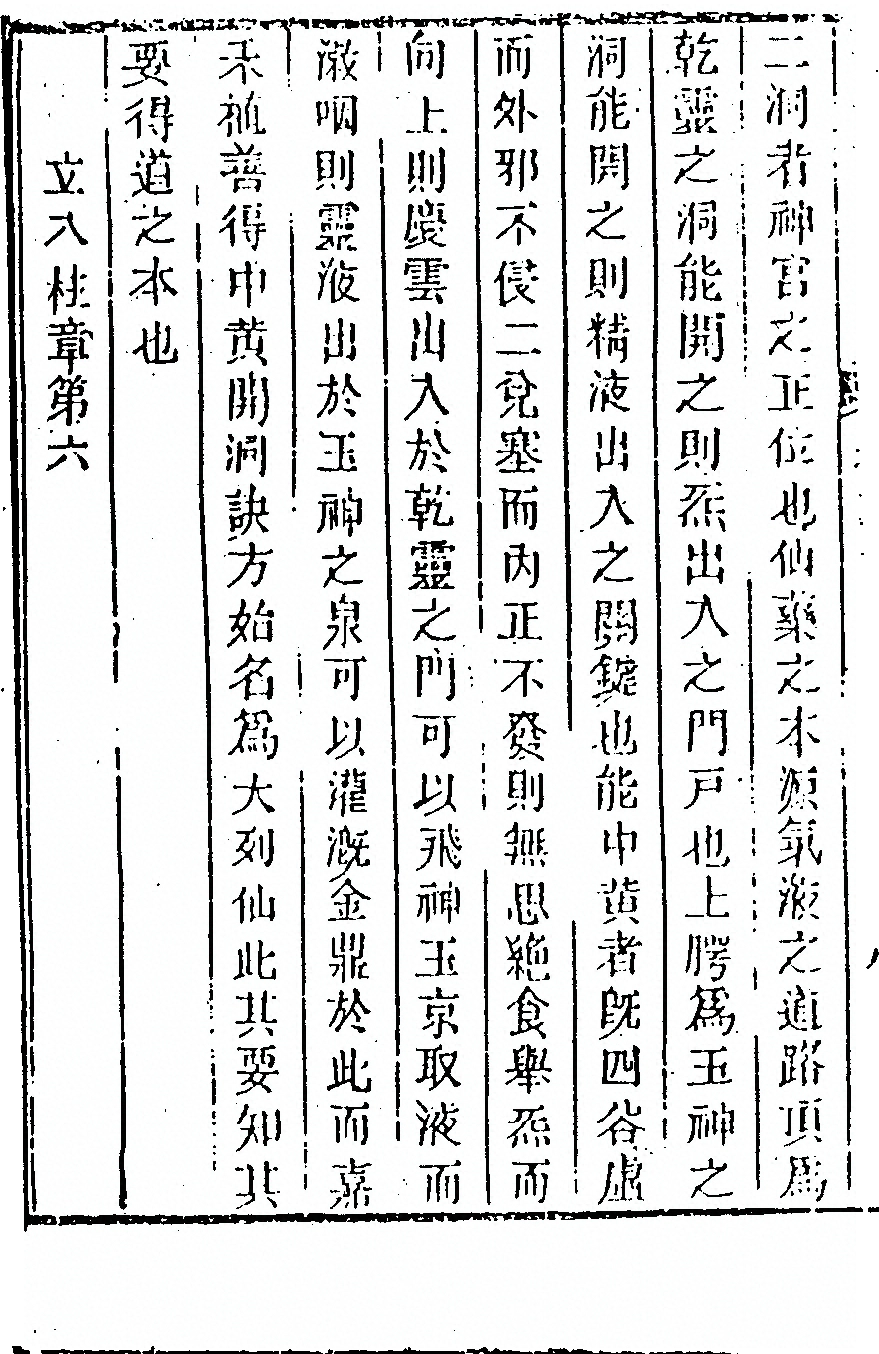 二洞者神宮之正位也仙藥之本源氣液之道路頂爲
乾靈之洞能開之則炁出入之門戸也上腭爲玉神之
洞能開之則精液出入之關鍵也能中黄者既四谷虛
而外邪不侵二兊塞而内正不發則無思絶食舉炁而
向上則慶雲出入於乾靈之門可以飛神玉京取液而
漱咽則靈液出於玉神之泉可以灌溉金鼎於此而嘉
禾植善得中黄開洞訣方始名爲大列仙此其要知其
要得道之本也
立八柱章第六